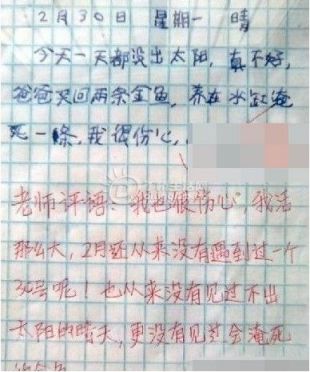 2月30日 星期一 晴
今天一天都没出太阳,真不好,
爸爸买回两条金鱼,养在水缸淹
死一条,我很伤心,
老师评语:“我也很伤心”,我活
那么大,2月还从来没有遇到过一个
30号呢!也从来没有见过不出
太阳的晴天,更没有见过会淹死